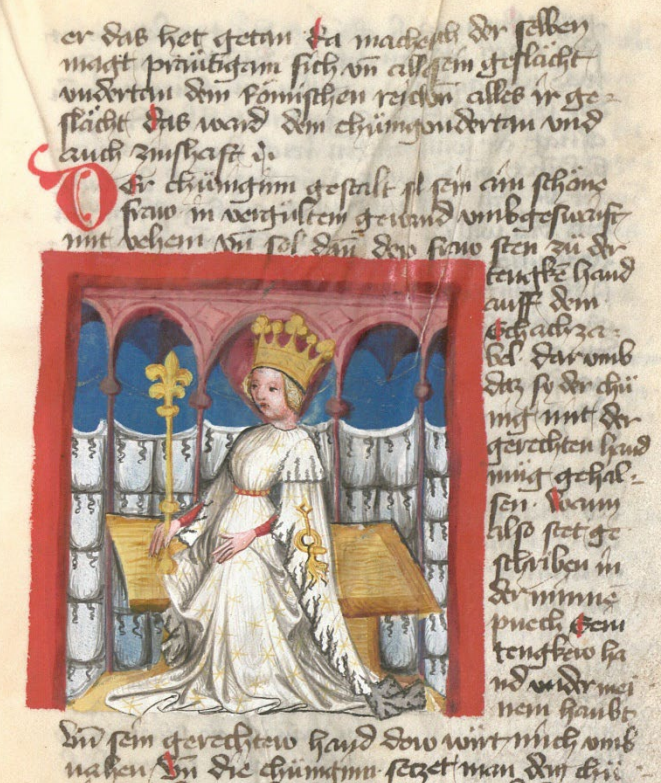 er das het getan Da machet sich der selben
magt präutigam sich vn̄ all sein geslächt
vndertan dem Römischen reich vn̄ alles ir ge-
slächt das ward dem chünig vndertan vnd
auch zinshaft
Der chünigīnn gestalt sol sein ain schöne
fraw in vergultem gewand vmbgeswaift
mit vehem vn̄ sol dan̄ dew fraw sten zu der
tengkē hand
auff dem
Schachza-
bel darvmb
daz sy der chü
nig mit der
gerechten hand
müg gehal-
sen. Wann
also stet ge
schriben in
der minne
puech Sein
tengkew ha
nd vnder mei
nem haubt
Vn̄ sein gerechtew hand dew wirt mich vmb
vahen Vn̄ die chünginn seczet man dem chü-